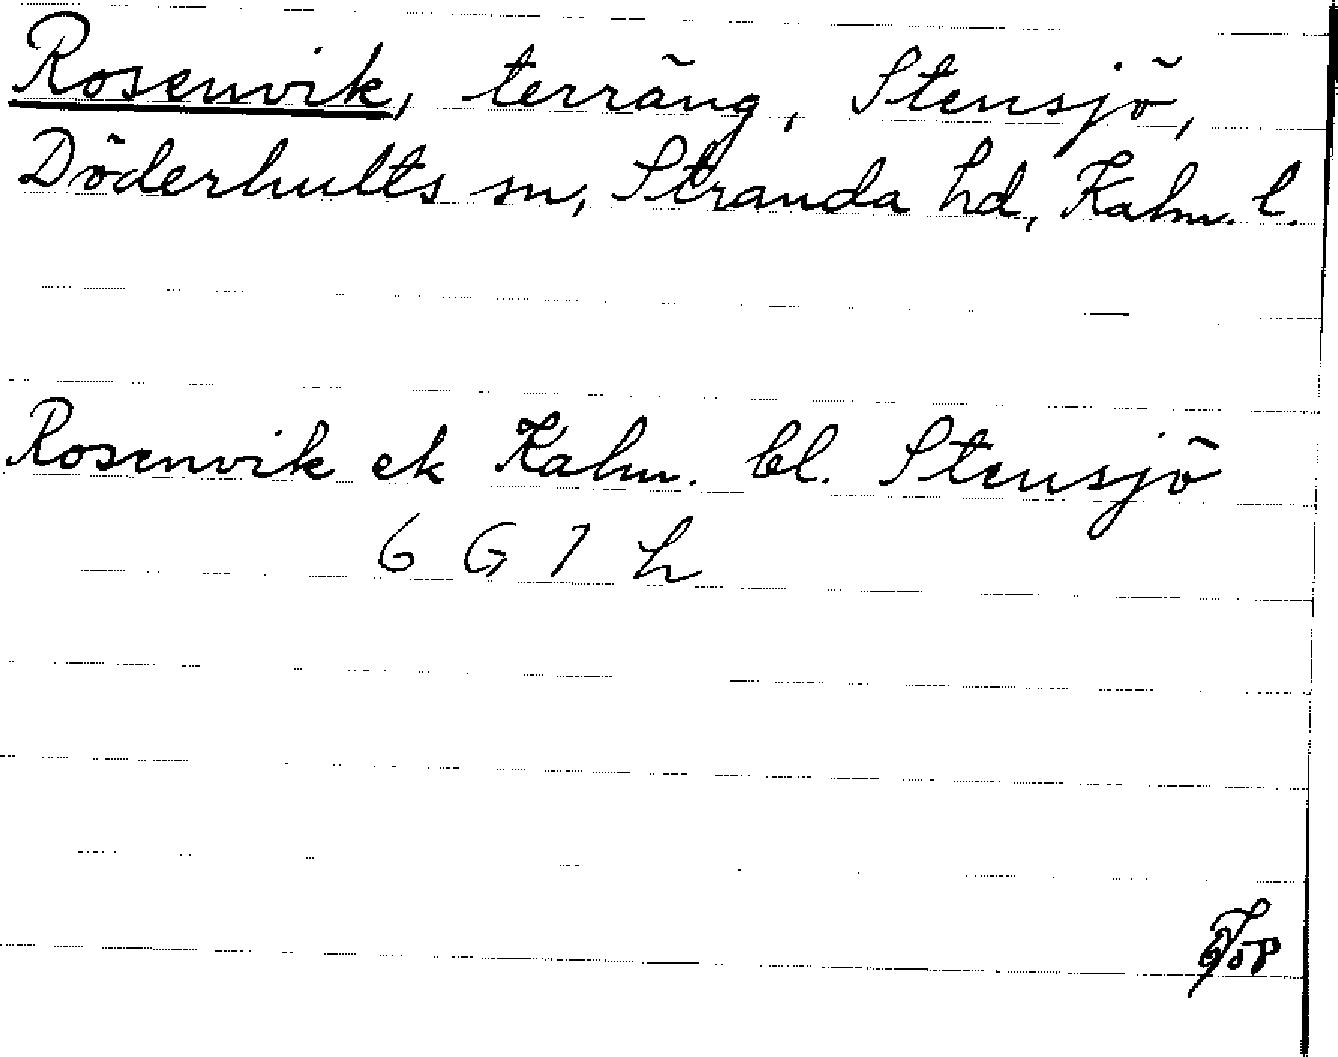 Rosenvik, terräng, Stensjö,
Döderhults sn, Stranda hd, Kalm. l.
Rosenvik ek Kalm. bl. Stensjö
6 G 7 h